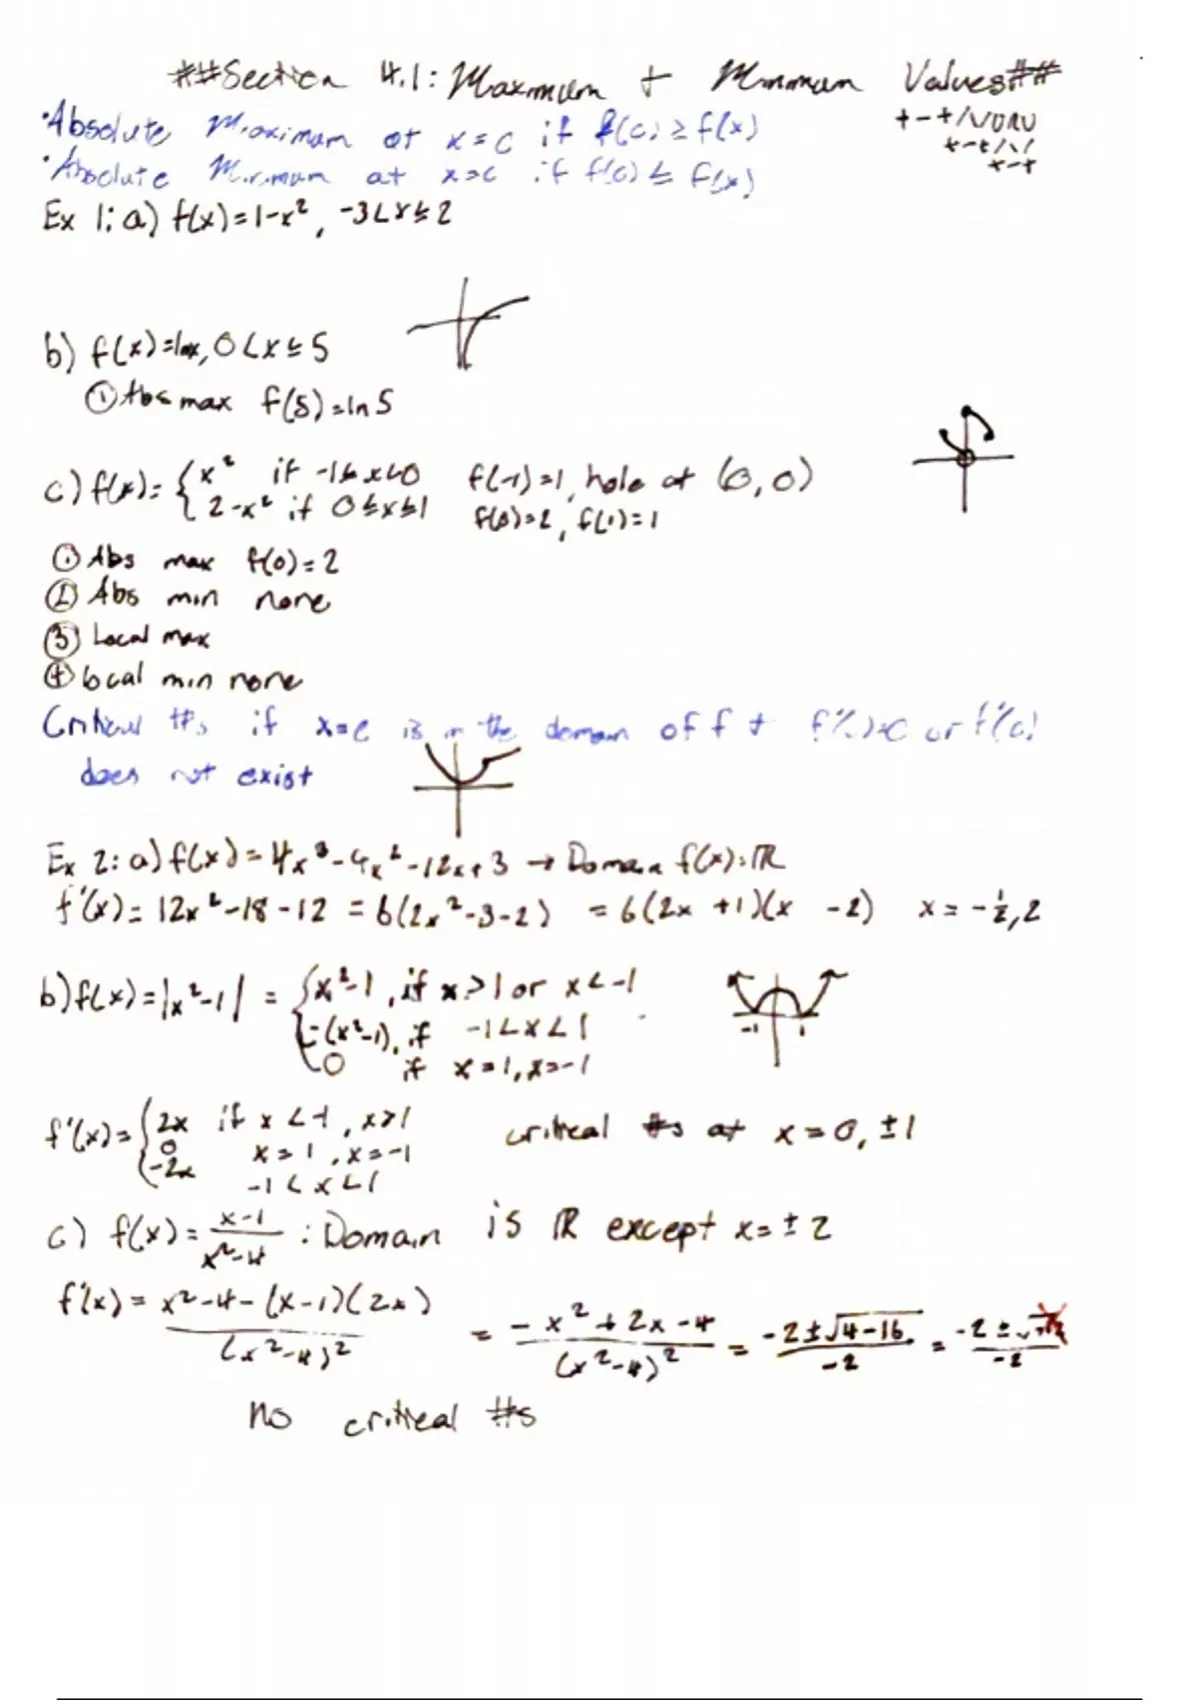 ##Section 4.1: Maximum + Minimum Values##
+-+/VUNU
+-+/\/
+-+
•Absolute Maximum at x=c if f(c)≥f(x)
•Absolute Minimum at x=c if f(c)≤f(x)
Ex 1: a) f(x)=1-x², -3<x≤2
b) f(x)=lnx, 0<x≤5
① Abs max f(5)=ln5
c) f(x)= { x² if -1≤x<0 f(-1)=1, hole at (0,0)
2-x² if 0≤x≤1 f(0)=2, f(1)=1
① Abs max f(0)=2
② Abs min none
③ Local max
④ local min none
Critical #s if x=c is in the domain of f + f'(c)=0 or f'(c)
does not exist
Ex 2: a) f(x)=4x³-9x²-12x+3 → Domain f(x): ℝ
f'(x)= 12x²-18-12 = 6(2x²-3-2) = 6(2x +1)(x -2) x=-½,2
b) f(x)=|x²-1| = { x²-1, if x>1 or x<-1
-(x²-1), if -1<x<1
0 if x=1, x=-1
-1 1
f'(x)= { 2x if x<-1, x>1 critical #s at x=0, ±1
0 x=1, x=-1
-2x -1<x<1
c) f(x)= x-1/x²-4 : Domain is ℝ except x=±2
f'(x)= x²-4-(x-1)(2x)/(x²-4)² = -x²+2x-4/(x²-4)² = -2±√4-16/-2 = -2±√/-2
no critical #s